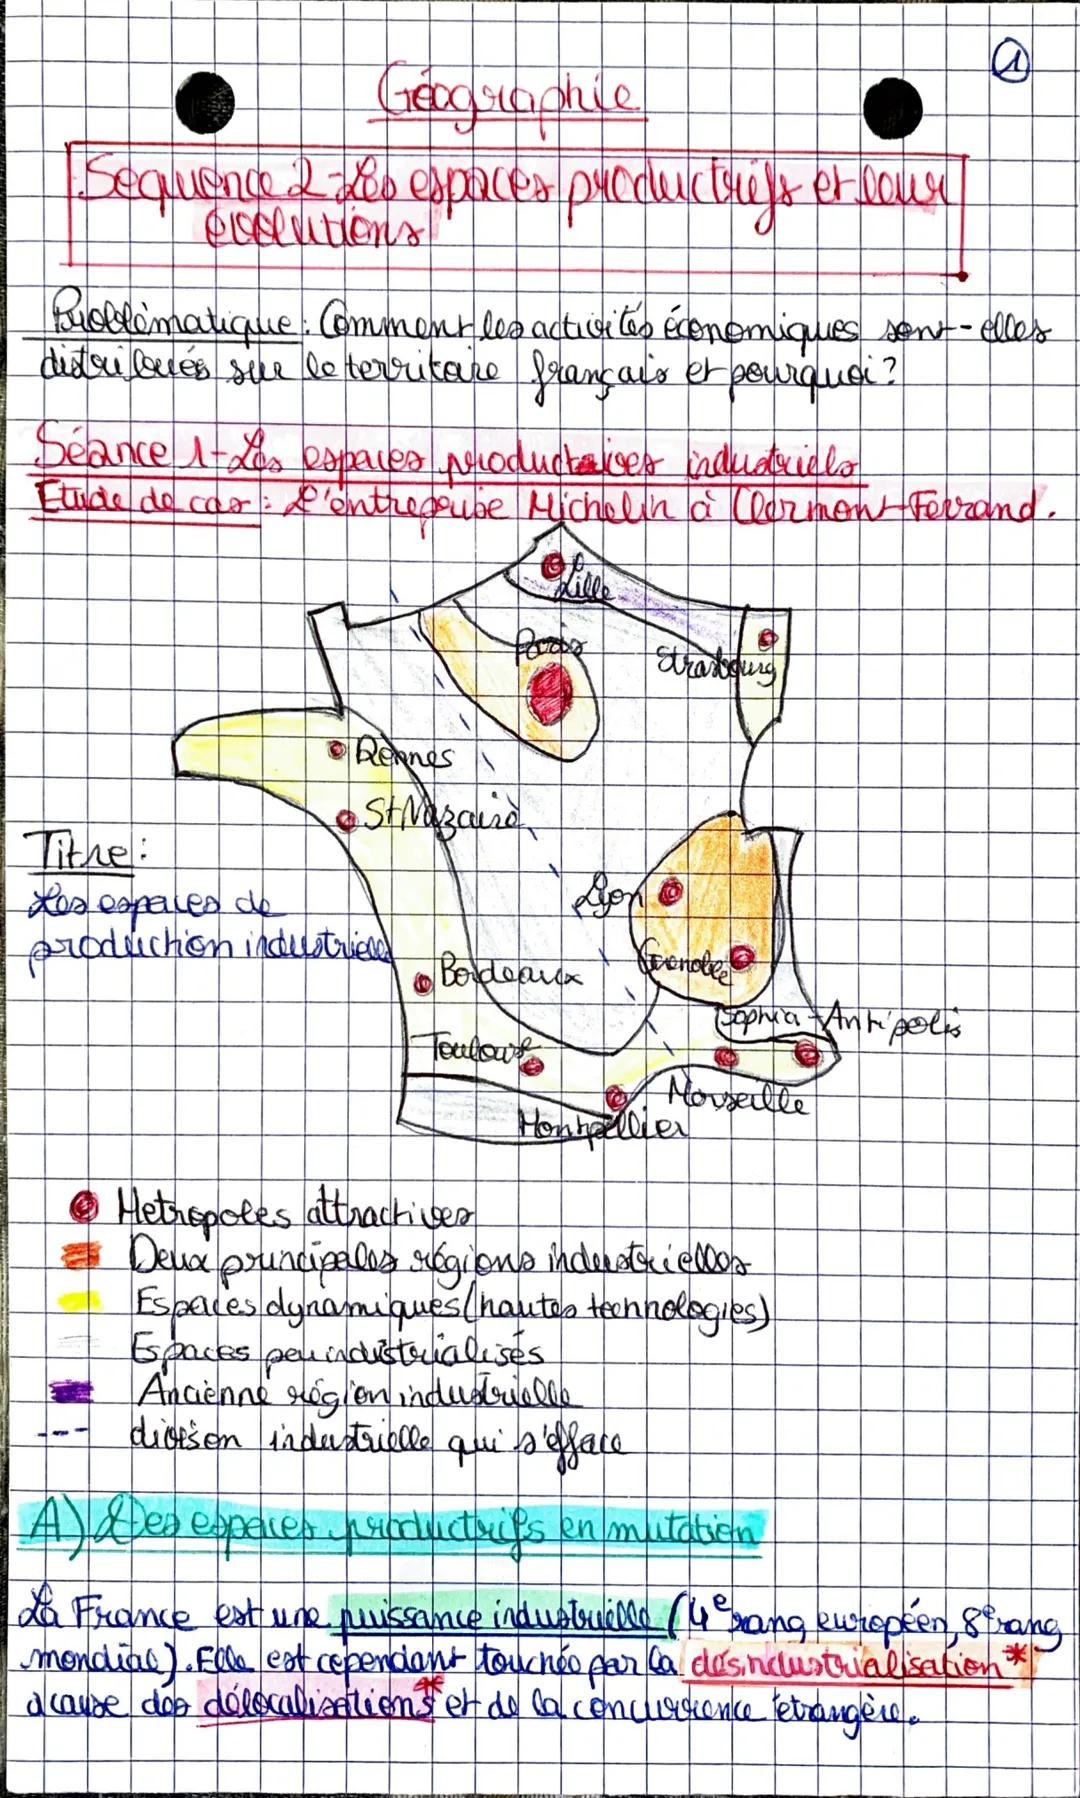 1
Géographie
Séquence 2-Les espaces productifs et leur
évolutions
Problématique : Comment les activités économiques sont-elles
distribués sur le territoire français et pourquoi ?
Séance 1-Les espaces productives industriels
Etude de cas : L'entrepruise Michelin à Clermont-Ferrand.
Lille
Paris
Strasbourg
Rennes
St Nazaire
Titre :
Les espaces de
production industrielle
Lyon
Grenoble
Bordeaux
Sophia-Antipolis
Toulouse
Marseille
Montpellier
Metropoles attractives
Deux principales régions industrielles
Espaces dynamiques (hautes technologies)
Espaces peu industrialisés
Ancienne région industrielle
division industrielle qui s'efface
A) Des espaces productrifs en mutation
La France est une puissance industrielle (4e rang européen, 8e rang
mondial). Elle est cependant touchée par la désindustrialisation*
à cause des délocalisations* et de la concurrence étrangère.